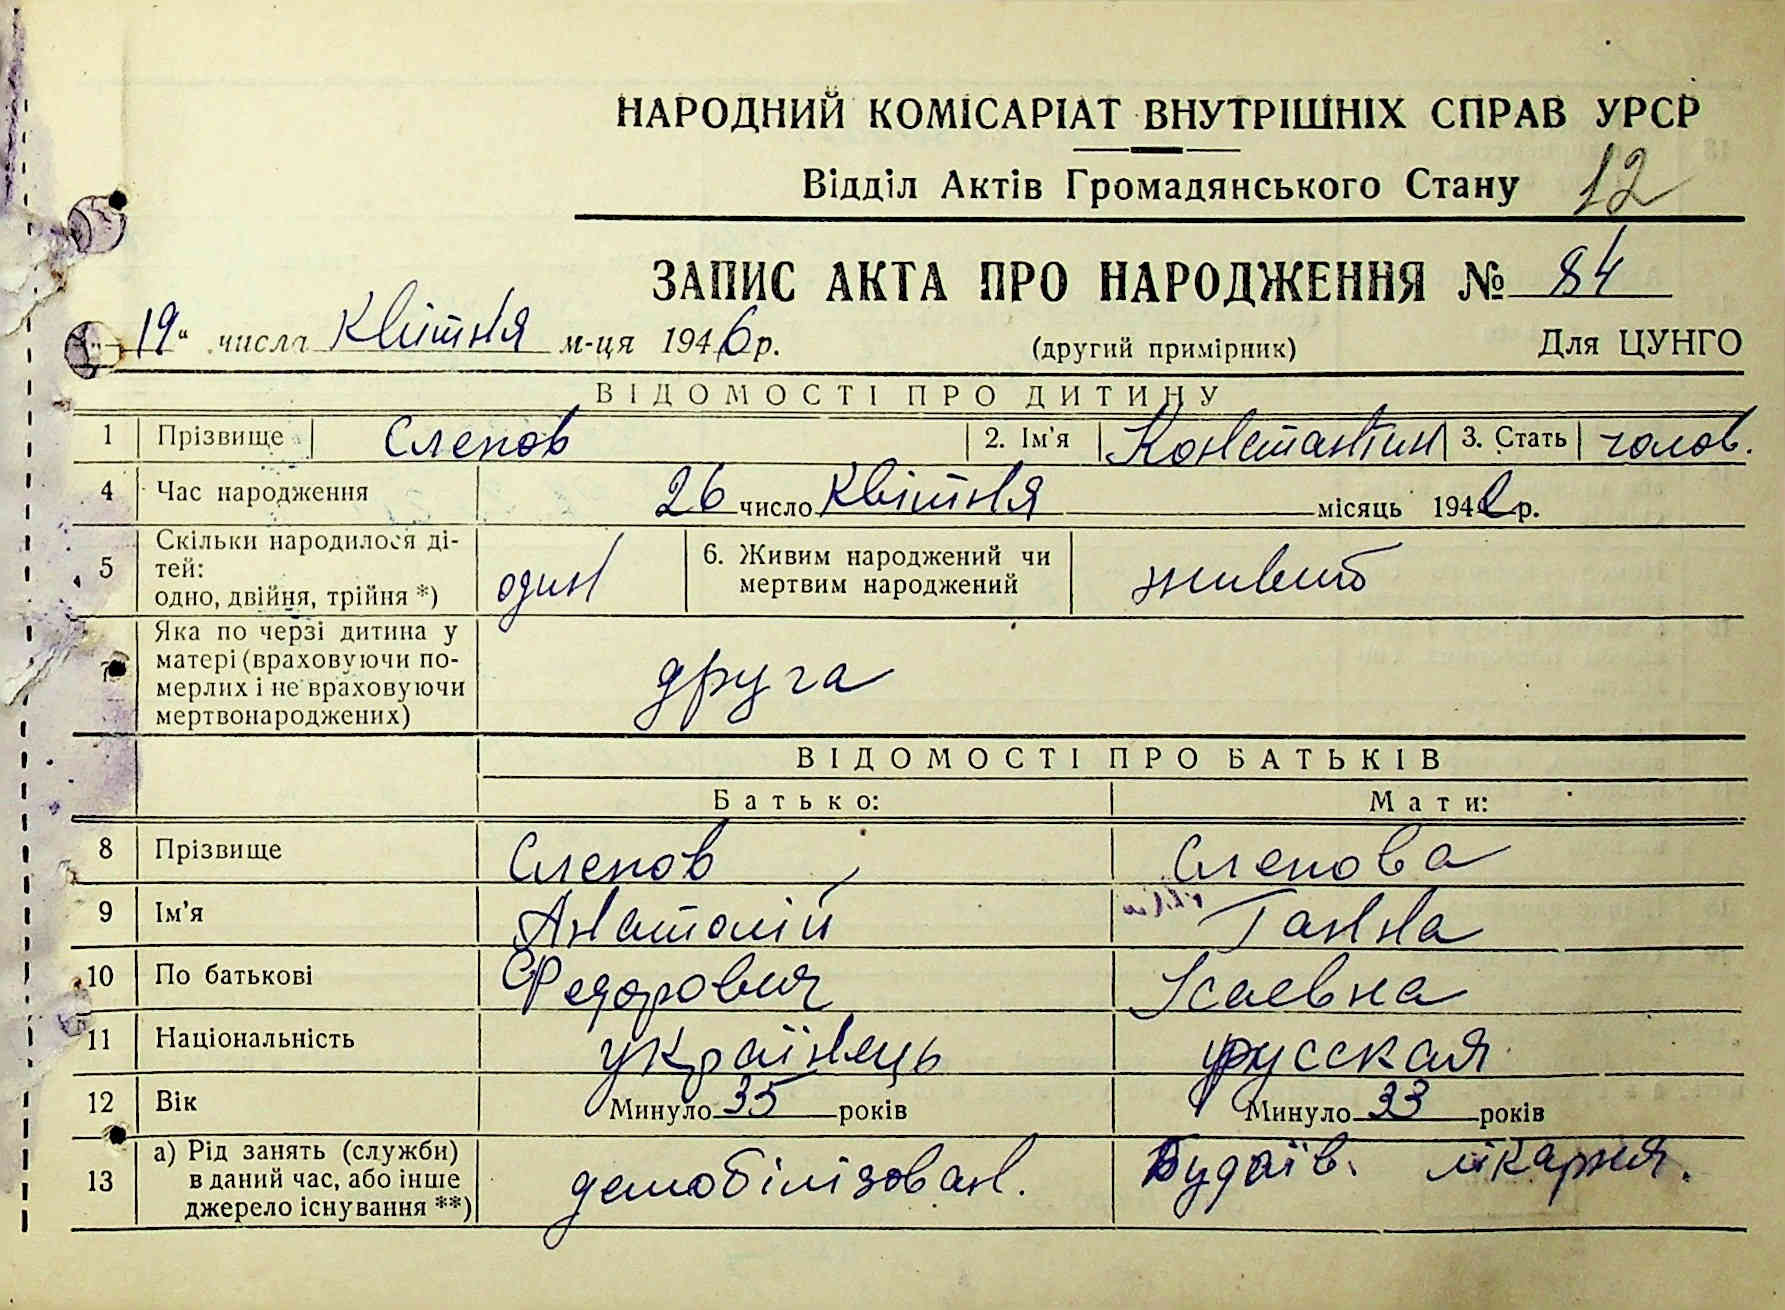 НАРОДНИЙ КОМІСАРІАТ ВНУТРІШНІХ СПРАВ УРСР
Відділ Актів Громадянського Стану 12
ЗАПИС АКТА ПРО НАРОДЖЕННЯ № 84
„19“ числа Квітня м-ця 1946 р. (другий примірник) Для ЦУНГО
ВІДОМОСТІ ПРО ДИТИНУ
1 Прізвище Слепов 2. Ім'я Константин 3. Стать чолов.
4 Час народження 26 число Квітня місяць 1942 р.
5 Скільки народилося ді-
тей:
одно, двійня, трійня *) один 6. Живим народжений чи
мертвим народжений живим
7 Яка по черзі дитина у
матері (враховуючи по-
мерлих і не враховуючи
мертвонароджених) друга
ВІДОМОСТІ ПРО БАТЬКІВ
Батько: Мати:
8 Прізвище Слепов Слепова
9 Ім'я Анатолій Ганна
10 По батькові Федорович Ісаевна
11 Національність українець русская
12 Вік Минуло 35 років Минуло 33 років
13 а) Рід занять (служби)
в даний час, або інше
джерело існування **) демобілізован. Будаїв. лікарня.